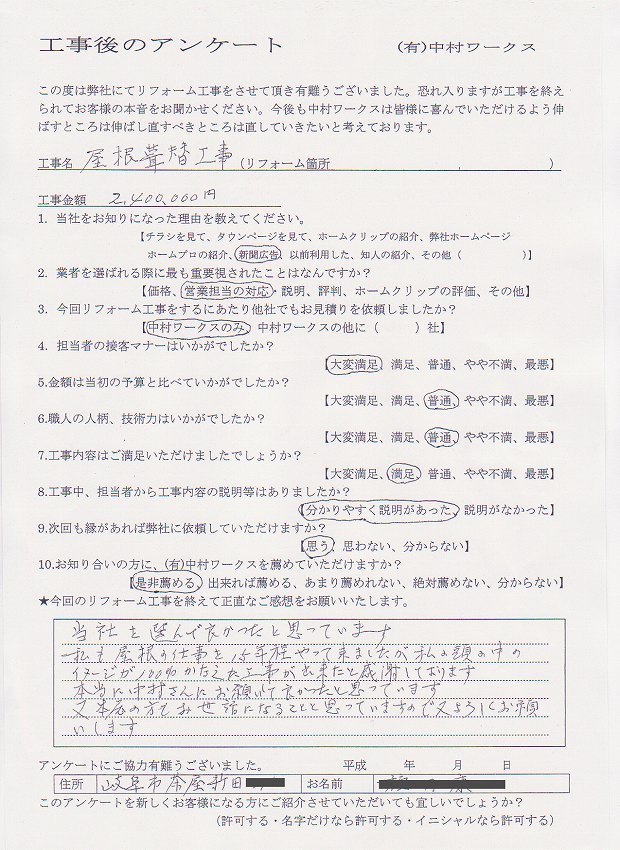 工事後のアンケート (有)中村ワークス
この度は弊社にてリフォーム工事をさせて頂き有難うございました。恐れ入りますが工事を終え
られてお客様の本音をお聞かせください。今後も中村ワークスは皆様に喜んでいただけるよう伸
ばすところは伸ばし直すべきところは直していきたいと考えております。
工事名 屋根葺替工事 (リフォーム箇所 )
工事金額 2,400,000円
1. 当社をお知りになった理由を教えてください。
【チラシを見て、タウンページを見て、ホームクリップの紹介、弊社ホームページ
ホームプロの紹介、新聞広告、以前利用した、知人の紹介、その他( )】
2. 業者を選ばれる際に最も重要視されたことはなんですか?
【価格、営業担当の対応・説明、評判、ホームクリップの評価、その他】
3. 今回リフォーム工事をするにあたり他社でもお見積りを依頼しましたか?
【中村ワークスのみ、中村ワークスの他に( )社】
4. 担当者の接客マナーはいかがでしたか?
【大変満足、満足、普通、やや不満、最悪】
5.金額は当初の予算と比べていかがでしたか?
【大変満足、満足、普通、やや不満、最悪】
6.職人の人柄、技術力はいかがでしたか?
【大変満足、満足、普通、やや不満、最悪】
7.工事内容はご満足いただけましたでしょうか?
【大変満足、満足、普通、やや不満、最悪】
8.工事中、担当者から工事内容の説明等はありましたか?
【分かりやすく説明があった、説明がなかった】
9.次回も縁があれば弊社に依頼していただけますか?
【思う、思わない、分からない】
10.お知り合いの方に、(有)中村ワークスを薦めていただけますか?
【是非薦める、出来れば薦める、あまり薦めれない、絶対薦めない、分からない】
★今回のリフォーム工事を終えて正直なご感想をお願いいたします。
当社を選んで良かったと思っています
私も屋根の仕事を15年程やって来ましたが私の頭の中の
イメージが100%かなえた工事が出来たと感謝しております
本当に中村さんにお願いして良かったと思っています
又本店の方でお世話になることと思っていますので又よろしくお願
いします
アンケートにご協力有難うございました。 平成 年 月 日
住所 岐阜市茶屋新田 お名前
このアンケートを新しくお客様になる方にご紹介させていただいても宜しいでしょうか?
(許可する・名字だけなら許可する・イニシャルなら許可する)